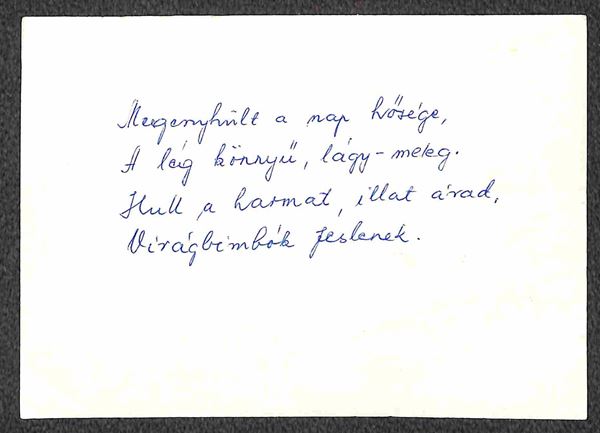 Megenyhült a nap hősége,
A lég könnyű, lágy-meleg.
Hull a harmat, illat árad,
Virágbimbók feslenek.